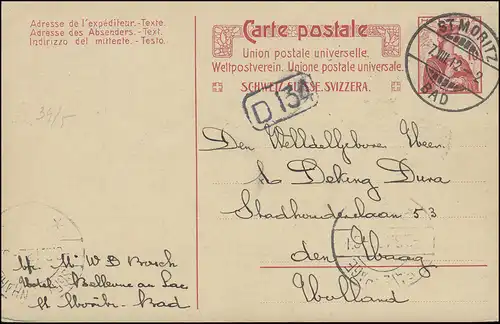 Adresse de l'expéditeur.-Texte.
Adresse des Absenders.-Text.
Indirizzo del mittente.-Testo.
Carte postale
Union postale universelle.
Weltpostverein. Unione postale universale.
SCHWEIZ. SUISSE. SVIZZERA.
ST. MORITZ
BAD
D 134
39/5
Den Weledelgeboren Heer.
L Deking Dura
Stadhouderslaan 53
den Haag
Holland
Mr/W D Bosch
Hotel Bellevue au Lac
St Moritz-Bad